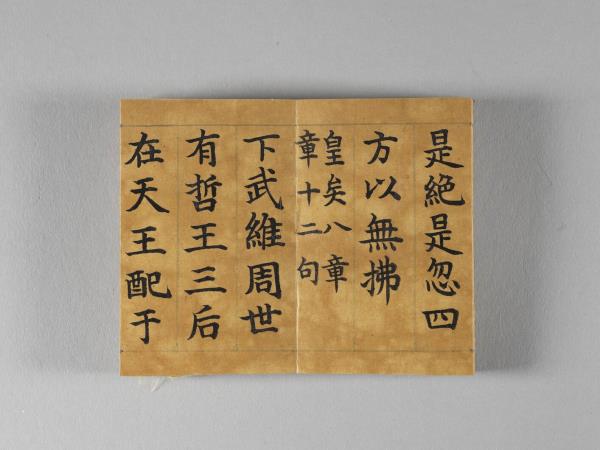 是絶是忽四
方以無拂
皇矣八章
章十二句
下武維周世
有哲王三后
在天王配于